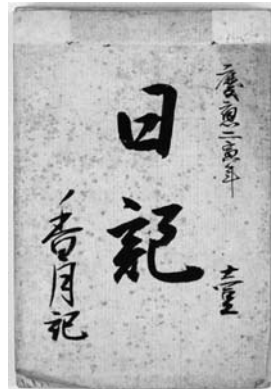 慶應二寅年 壹
日記
香月記